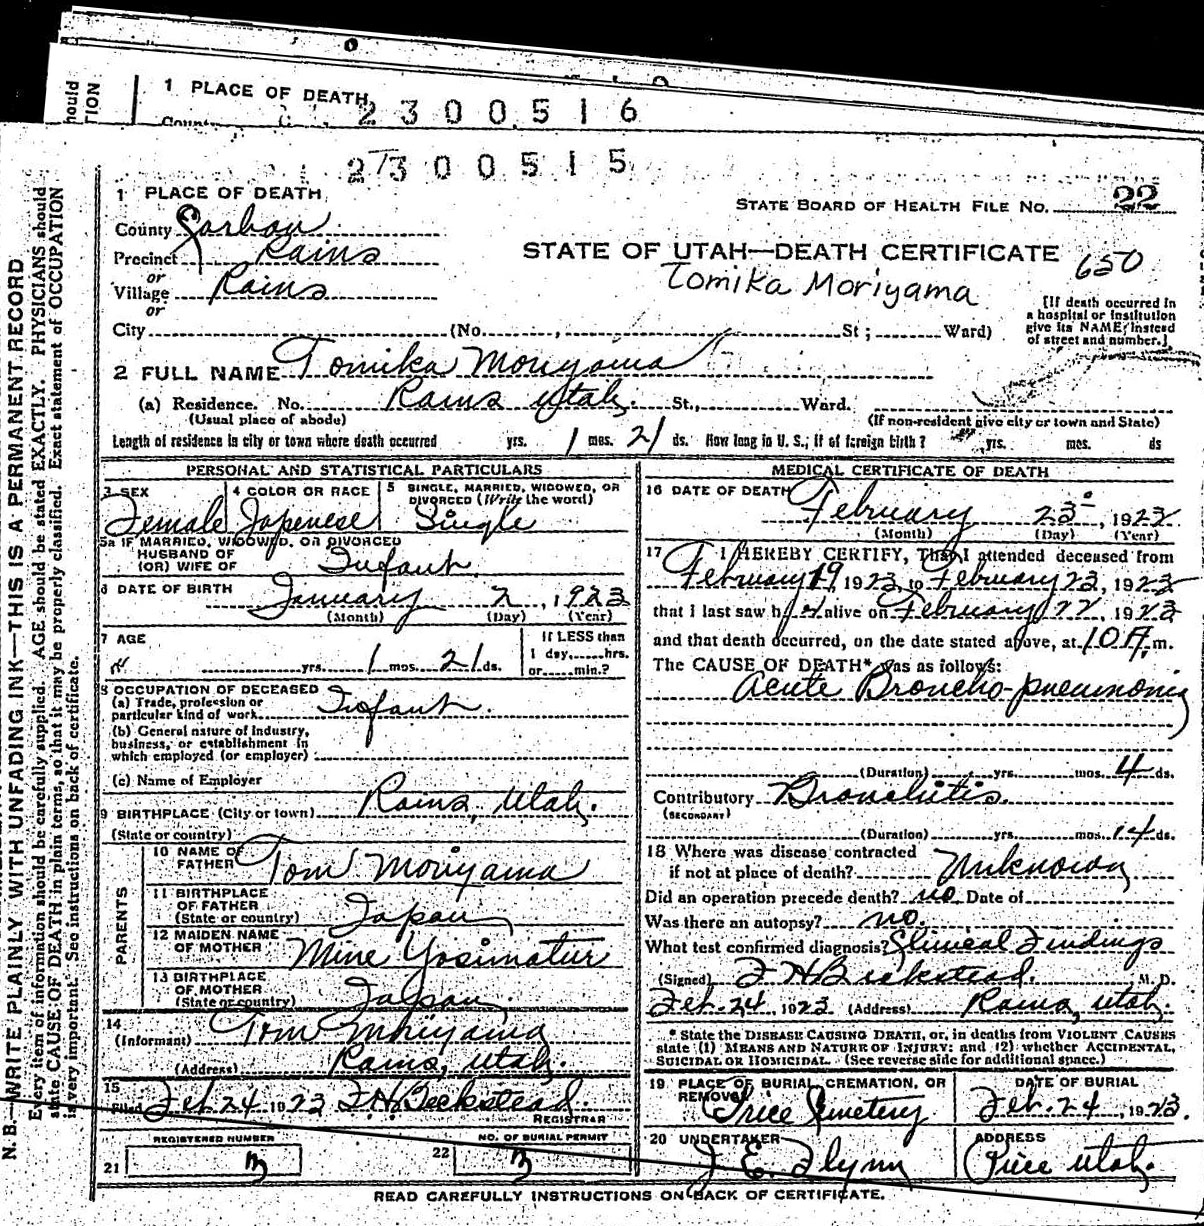 1 PLACE OF DEATH
2300516
2300515
1 PLACE OF DEATH
STATE BOARD OF HEALTH FILE No. 22
County Carbon
Precinct Rains
or
Village Rains
or
STATE OF UTAH—DEATH CERTIFICATE 650
Tomika Moriyama
[If death occurred in
a hospital or institution
give its NAME, instead
of street and number.]
City (No. , St ; Ward)
2 FULL NAME Tomika Moriyama
(a) Residence. No. Rains Utah. St., Ward.
(Usual place of abode) (If non-resident give city or town and State)
Length of residence in city or town where death occurred yrs. 1 mos. 21 ds. How long in U. S.; if of foreign birth? yrs. mos. ds
PERSONAL AND STATISTICAL PARTICULARS
3 SEX 4 COLOR OR RACE 5 SINGLE, MARRIED, WIDOWED, OR
DIVORCED (Write the word)
Female Japenese Single
5a IF MARRIED, WIDOWED, OR DIVORCED
HUSBAND OF
(OR) WIFE OF Infant
6 DATE OF BIRTH January 2, 1923
(Month) (Day) (Year)
7 AGE If LESS than
1 day, hrs.
yrs. 1 mos. 21 ds. or min.?
8 OCCUPATION OF DECEASED
(a) Trade, profession or
particular kind of work Infant.
(b) General nature of industry,
business, or establishment in
which employed (or employer)
(c) Name of Employer
9 BIRTHPLACE (City or town) Rains, Utah.
(State or country)
PARENTS
10 NAME OF
FATHER Tom Moriyama
11 BIRTHPLACE
OF FATHER
(State or country) Japan
12 MAIDEN NAME
OF MOTHER Mine Yosimatur
13 BIRTHPLACE
OF MOTHER
(State or country) Japan.
14
(Informant) Tom Moriyama
(Address) Rains, Utah.
15
Filed Feb. 24 1923 F. H. Beckstead
REGISTRAR
REGISTERED NUMBER NO. OF BURIAL PERMIT
21 3 22 3
MEDICAL CERTIFICATE OF DEATH
16 DATE OF DEATH February 23, 1923
(Month) (Day) (Year)
17 I HEREBY CERTIFY, That I attended deceased from
February 19 1923, to February 23, 1923
that I last saw her alive on February 22, 1923
and that death occurred, on the date stated above, at 10 A. m.
The CAUSE OF DEATH* was as follows:
Acute Broncho-pneumonia
(Duration) yrs. mos. 4 ds.
Contributory Bronchitis.
(SECONDARY)
(Duration) yrs. mos. 14 ds.
18 Where was disease contracted
if not at place of death? Unknown
Did an operation precede death? no Date of
Was there an autopsy? no.
What test confirmed diagnosis? Clinical Findings
(Signed) F H Beckstead. M. D.
Feb. 24 1923 (Address) Rains, Utah.
* State the DISEASE CAUSING DEATH, or, in deaths from VIOLENT CAUSES
state (1) MEANS AND NATURE OF INJURY; and (2) whether ACCIDENTAL,
SUICIDAL OR HOMICIDAL. (See reverse side for additional space.)
19 PLACE OF BURIAL, CREMATION, OR
REMOVAL DATE OF BURIAL
Price Cemetery Feb. 24, 1923.
20 UNDERTAKER ADDRESS
J. E. Flynn Price Utah.
READ CAREFULLY INSTRUCTIONS ON BACK OF CERTIFICATE.
N. B.—WRITE PLAINLY WITH UNFADING INK—THIS IS A PERMANENT RECORD
Every item of information should be carefully supplied. AGE should be stated EXACTLY. PHYSICIANS should
state CAUSE OF DEATH in plain terms, so that it may be properly classified. Exact statement of OCCUPATION
is very important. See instructions on back of certificate.